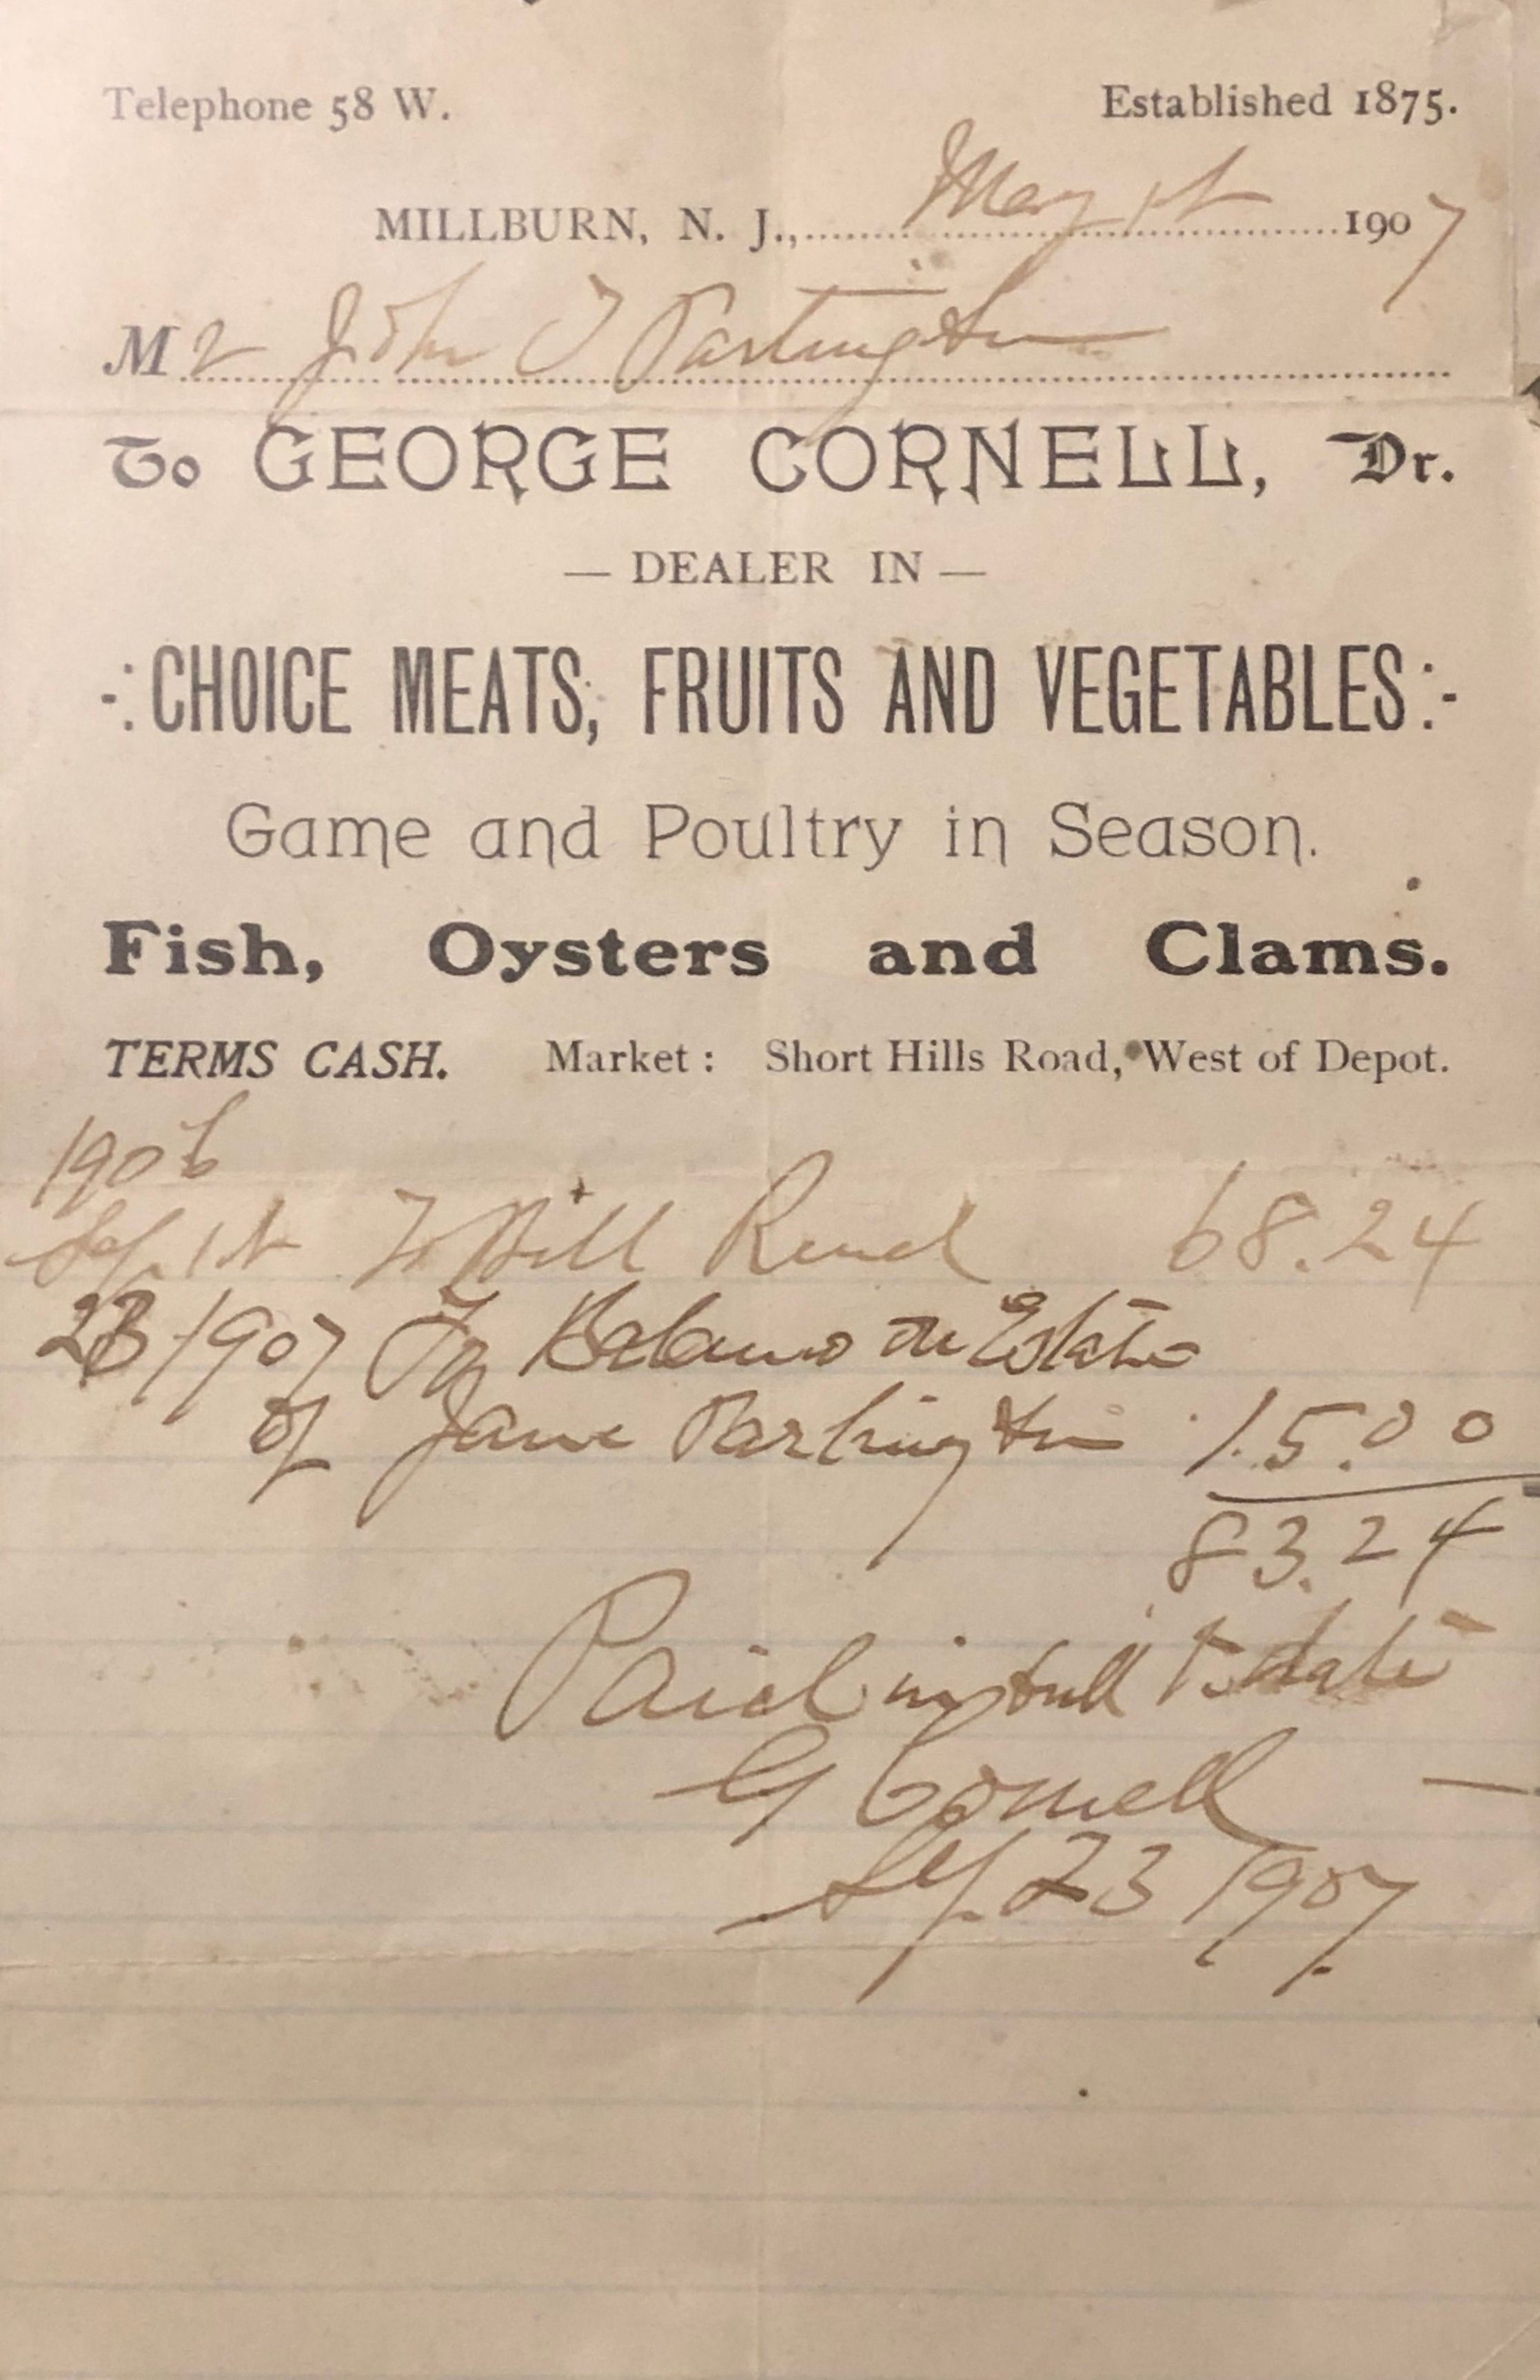 Telephone 58 W. Established 1875.
MILLBURN, N. J., May 1st 1907
Mr John T Partington
To GEORGE CORNELL, Dr.
— DEALER IN —
-:CHOICE MEATS, FRUITS AND VEGETABLES:-
Game and Poultry in Season.
Fish, Oysters and Clams.
TERMS CASH. Market: Short Hills Road, West of Depot.
1906
Sep 1st To Bill Rend 68.24
23/1907 To Balance on Estate
of Jane Partington 15.00
83.24
Paid in full to date
G Cornell
Sep 23 1907